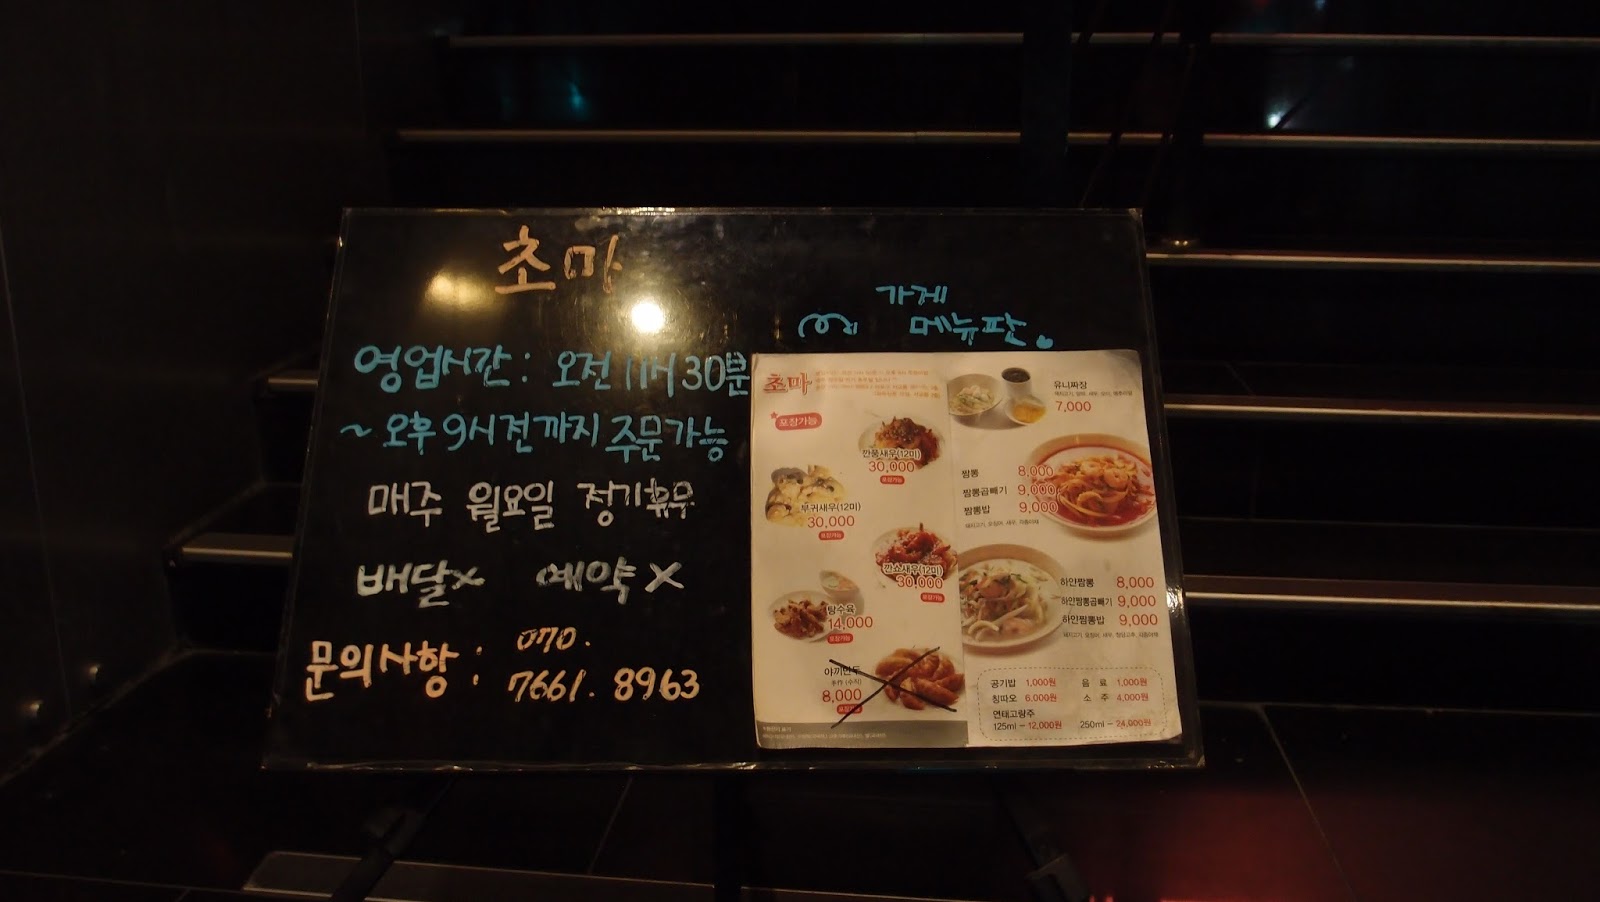 초마
영업시간 : 오전 11시 30분
~ 오후 9시전까지 주문가능
매주 월요일 정기휴무
배달x 예약X
문의사항 : 070.
7661. 8963
가게
메뉴판
초마
포장가능
깐풍새우(12미)
30,000
포장가능
부귀새우(12미)
30,000
포장가능
깐소새우(12미)
30,000
포장가능
탕수육
14,000
포장가능
야끼만두
8,000
포장가능
유니짜장
7,000
짬뽕 8,000
짬뽕곱빼기 9,000
짬뽕밥 9,000
하얀짬뽕 8,000
하얀짬뽕곱빼기 9,000
하얀짬뽕밥 9,000
공기밥 1,000원 음료 1,000원
칭따오 6,000원 소주 4,000원
연태고량주
125ml - 12,000원 250ml - 24,000원